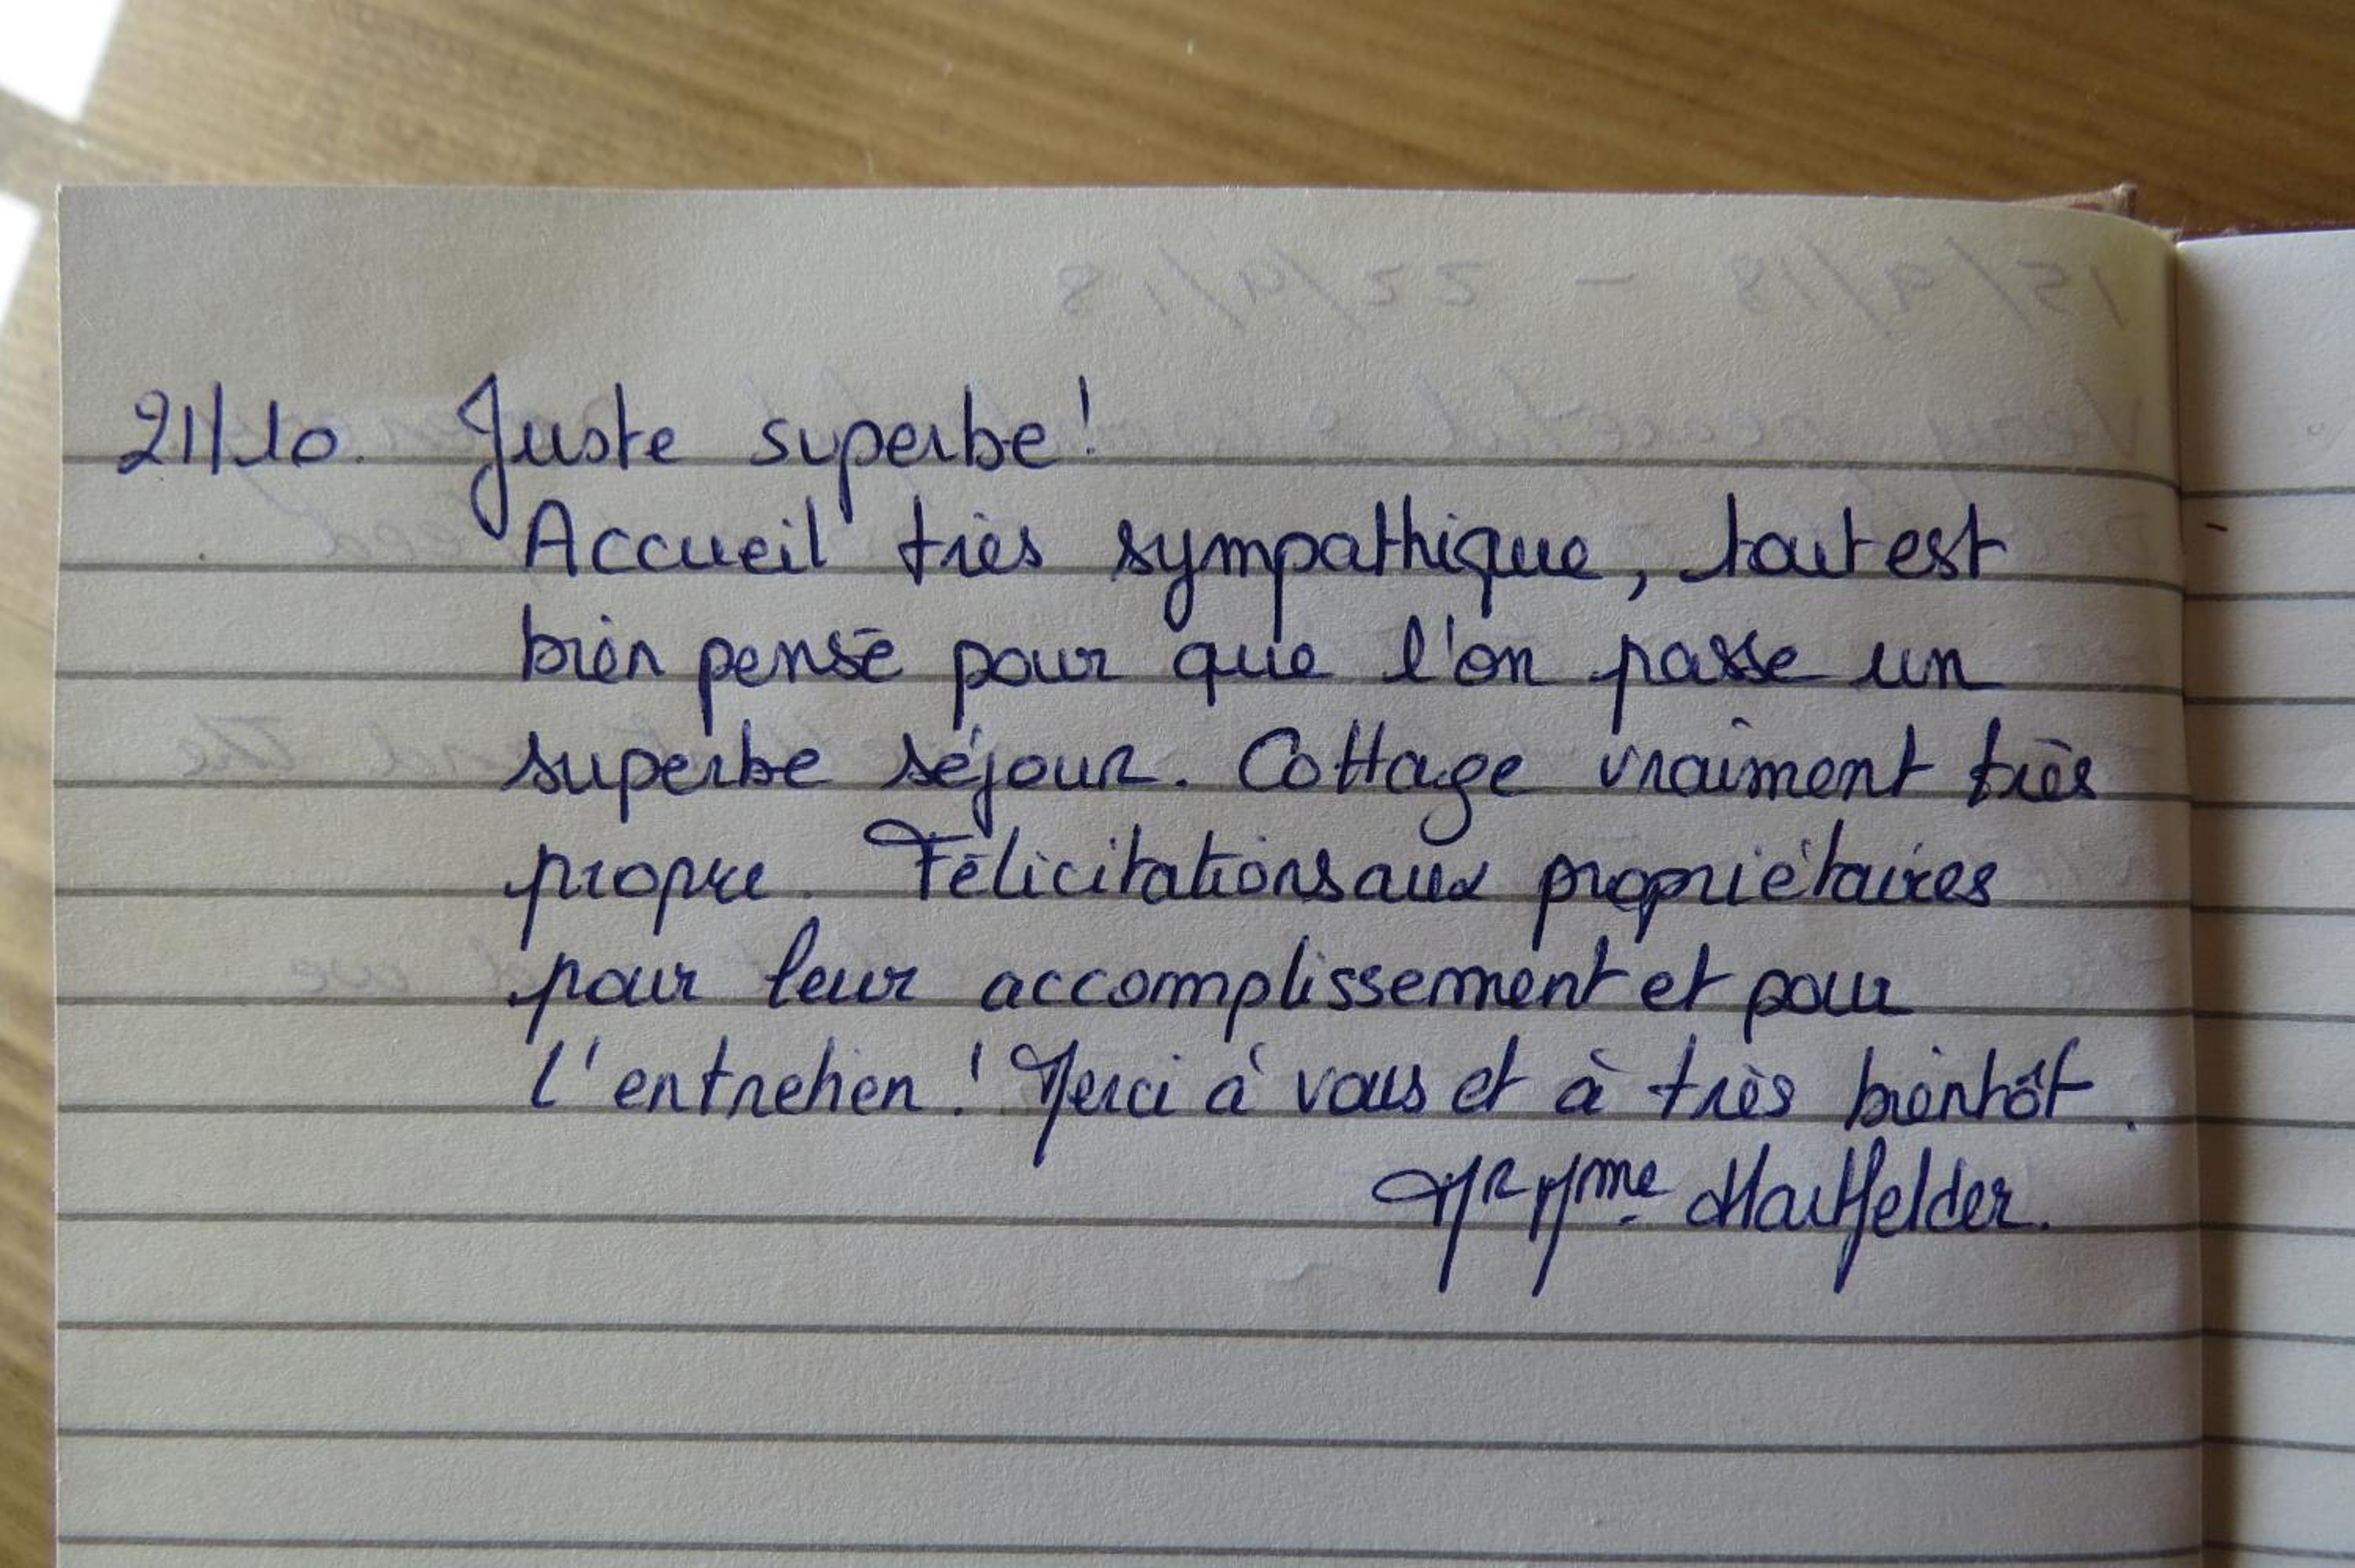 21/10. Juste superbe!
Accueil très sympathique, tout est
bien pensé pour que l'on passe un
superbe séjour. Cottage vraiment très
propre. Félicitations aux propriétaires
pour leur accomplissement et pour
l'entretien! Merci à vous et à très bientôt.
Mr Mme Hartfelder.